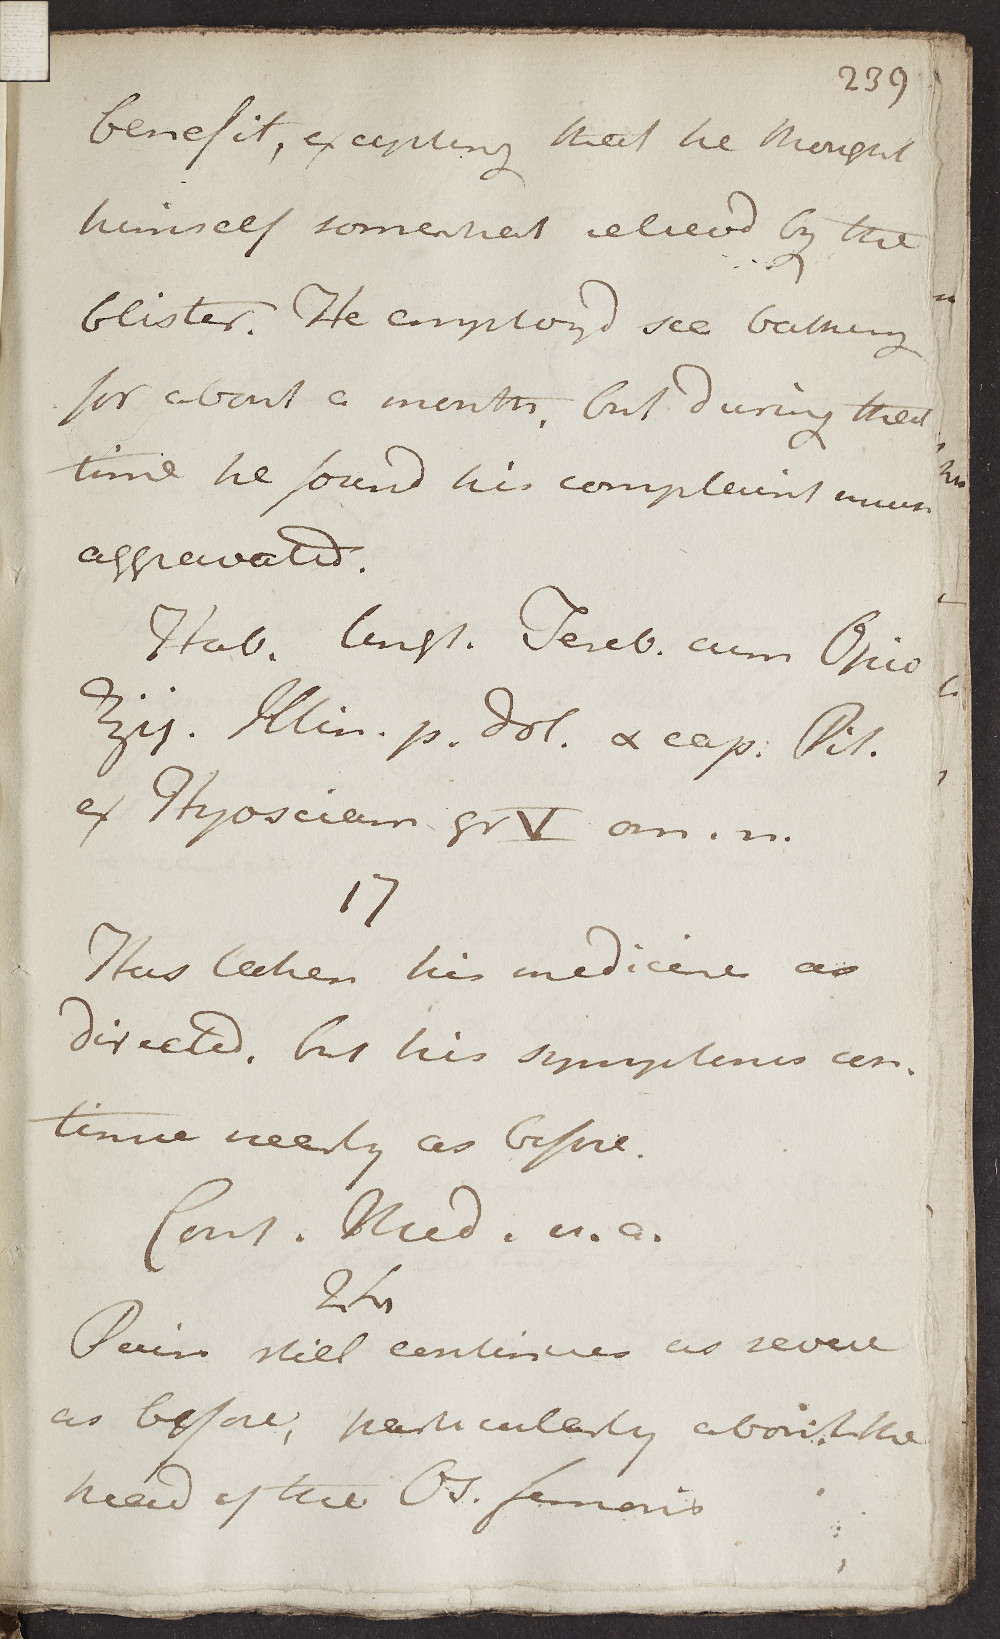 239
benefit, excepting that he thought
himself somewhat relieved by the
blister. He employ'd sea bathing
for about a month, but during that
time he found his complaint much
aggravated.
Hab. Ungt. Tereb. cum Opio
℥ij. Illin. p. dol. & cap. Pil.
ex Hyosciam gr V om. n.
17
Has taken his medicine as
directed, but his symptoms con-
tinue nearly as before.
Cont. Med. u.a.
24
Pain still continues as severe
as before, particularly about the
head of the Os. femoris